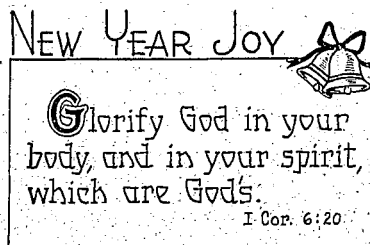 NEW YEAR JOY
Glorify God in your
body, and in your spirit,
which are God's.
I Cor. 6:20